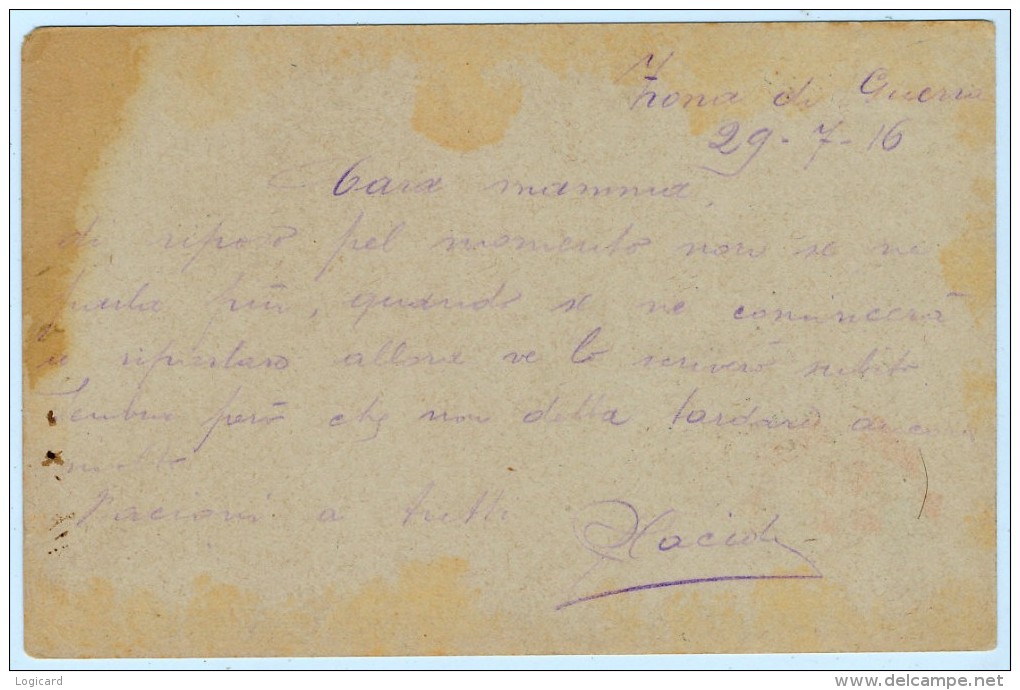 Zona di Guerra
29-7-16
Cara mamma,
di riposo pel momento non se ne
parla più, quando se ne comincerà
a riparlare allora ve lo scriverò subito
Sembra però che non debba tardare ancora
molto
Bacioni a tutti
Placido
Logicard
delcampe.net